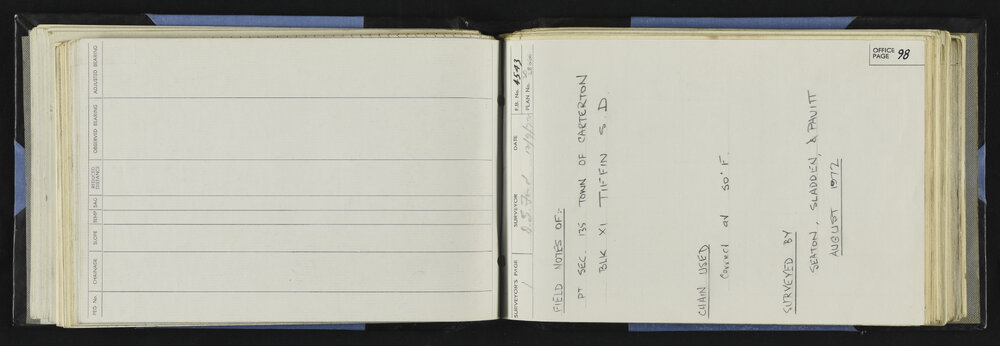 PEG No. CHAINAGE SLOPE TEMP SAG REDUCED DISTANCE OBSERVED BEARING ADJUSTED BEARING
OFFICE PAGE 98
SURVEYOR'S PAGE SURVEYOR DATE F.B. No. 4543
1 PLAN No.
FIELD NOTES OF:-
PT SEC 135 TOWN OF CARTERTON
BLK XI TIFFIN S.D.
CHAIN USED
Correct at 50° F.
SURVEYED BY
SEATON, SLADDEN, & PAVITT
AUGUST 1972